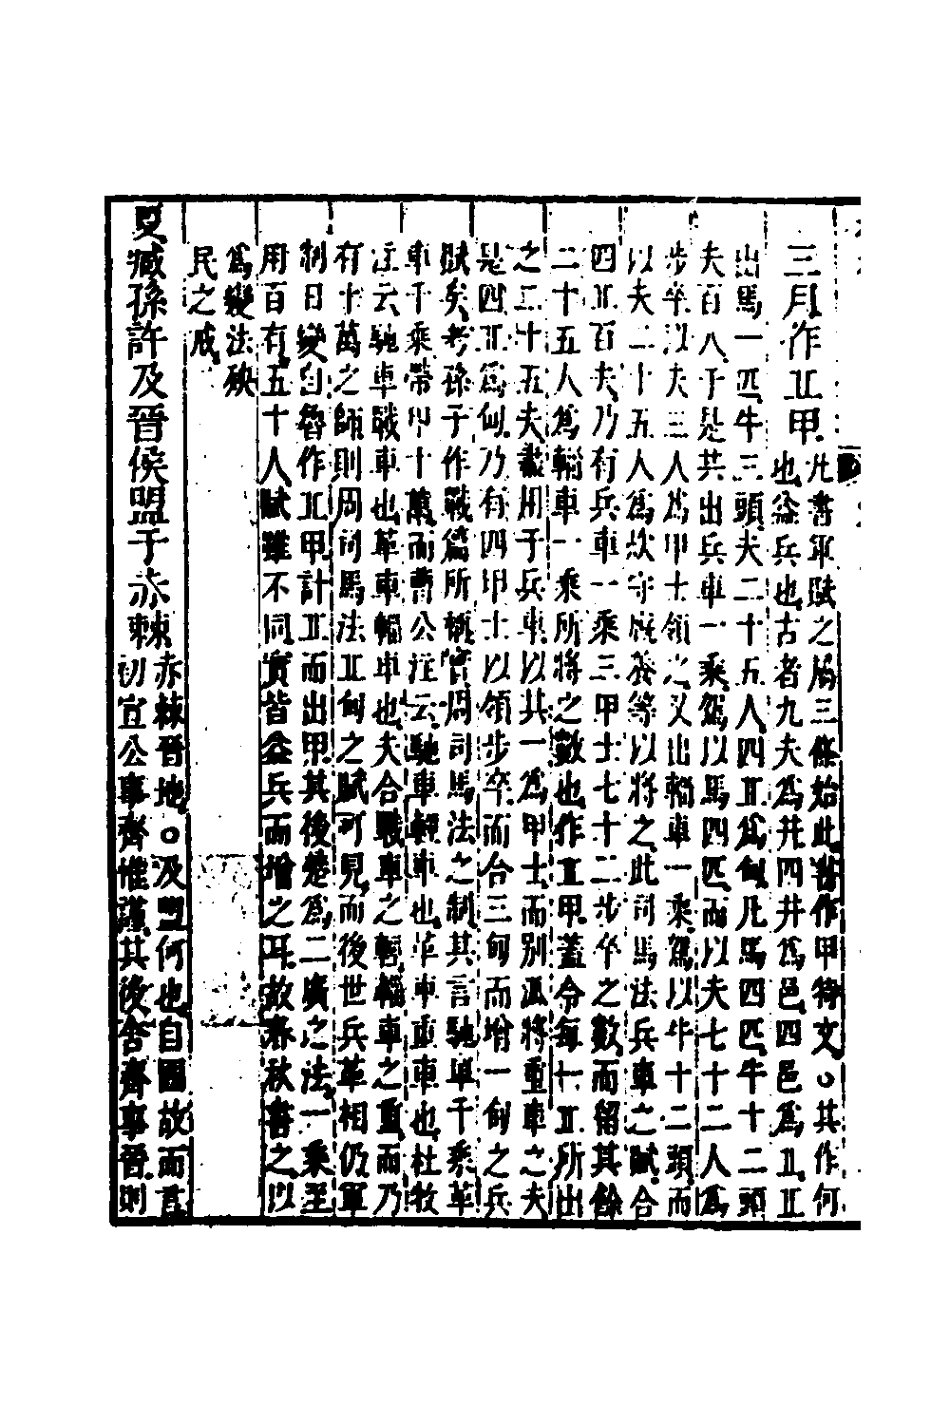 三月作丘甲
凡書軍賦之屬三條始此書作甲待文○其作何
也益兵也古者九夫為井四井為邑四邑為丘丘
出馬一匹牛三頭夫二十五人四丘為甸凡馬四匹牛十二頭
夫百八于是共出兵車一乘駕以馬四匹而以夫七十二人為
步卒以夫三人為甲士領之又出輜車一乘駕以牛十二頭而
以夫二十五人為炊守廐養等以將之此司馬法兵車之賦合
四丘百夫乃有兵車一乘三甲士七十二步卒之數而留其餘
二十五人為輜車一乘所將之數也作丘甲蓋令每一丘所出
之二十五夫盡用于兵車以其一為甲士而別派將重車之夫
是四丘為甸乃有四甲士以領步卒而合三甸而增一甸之兵
賦矣考孫子作戰篇所稱實周司馬法之制其言馳車千乘革
車千乘帶甲十萬而曹公注云馳車輕車也革車重車也杜牧
注云馳車戰車也革車輜車也夫合戰車之輕輜車之重而乃
有十萬之師則周司馬法丘甸之賦可見而後世兵革相仍軍
制日變自魯作丘甲計丘而出甲其後楚為二廣之法一乘至
用百有五十人賦雖不同實皆益兵而增之耳故春秋書之以
為變法殃
民之戒
夏臧孫許及晉侯盟于赤棘
赤棘晉地○及盟何也自國故而言
初宣公事齊惟謹其後舍齊事晉則